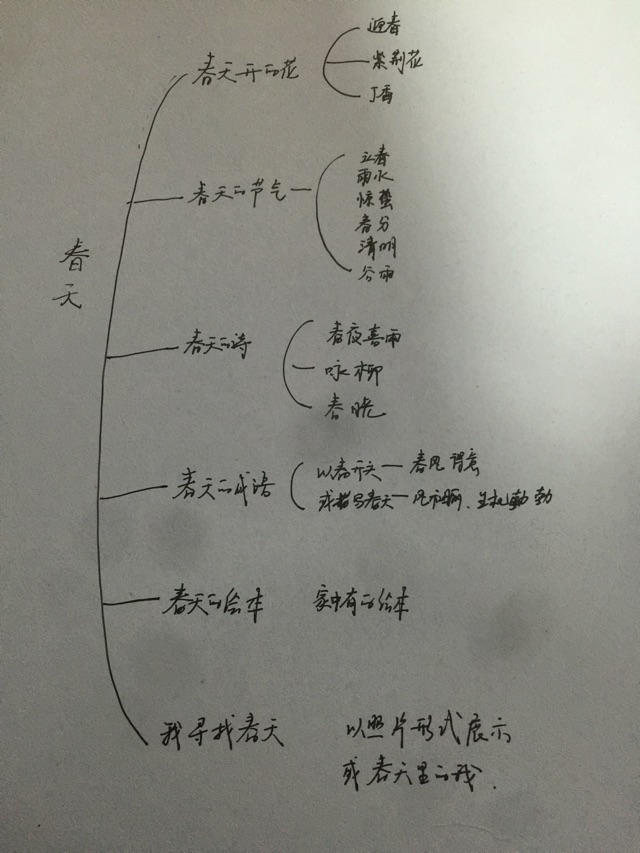 春天
春天开的花
迎春
紫荆花
丁香
春天的节气
立春
雨水
惊蛰
春分
清明
谷雨
春天的诗
春夜喜雨
咏柳
春晓
春天的成语
以春开头—春风得意
或描写春天—风和日丽、生机勃勃
春天的绘本
家中有的绘本
我寻找春天
以照片形式展示
或春天里的我.